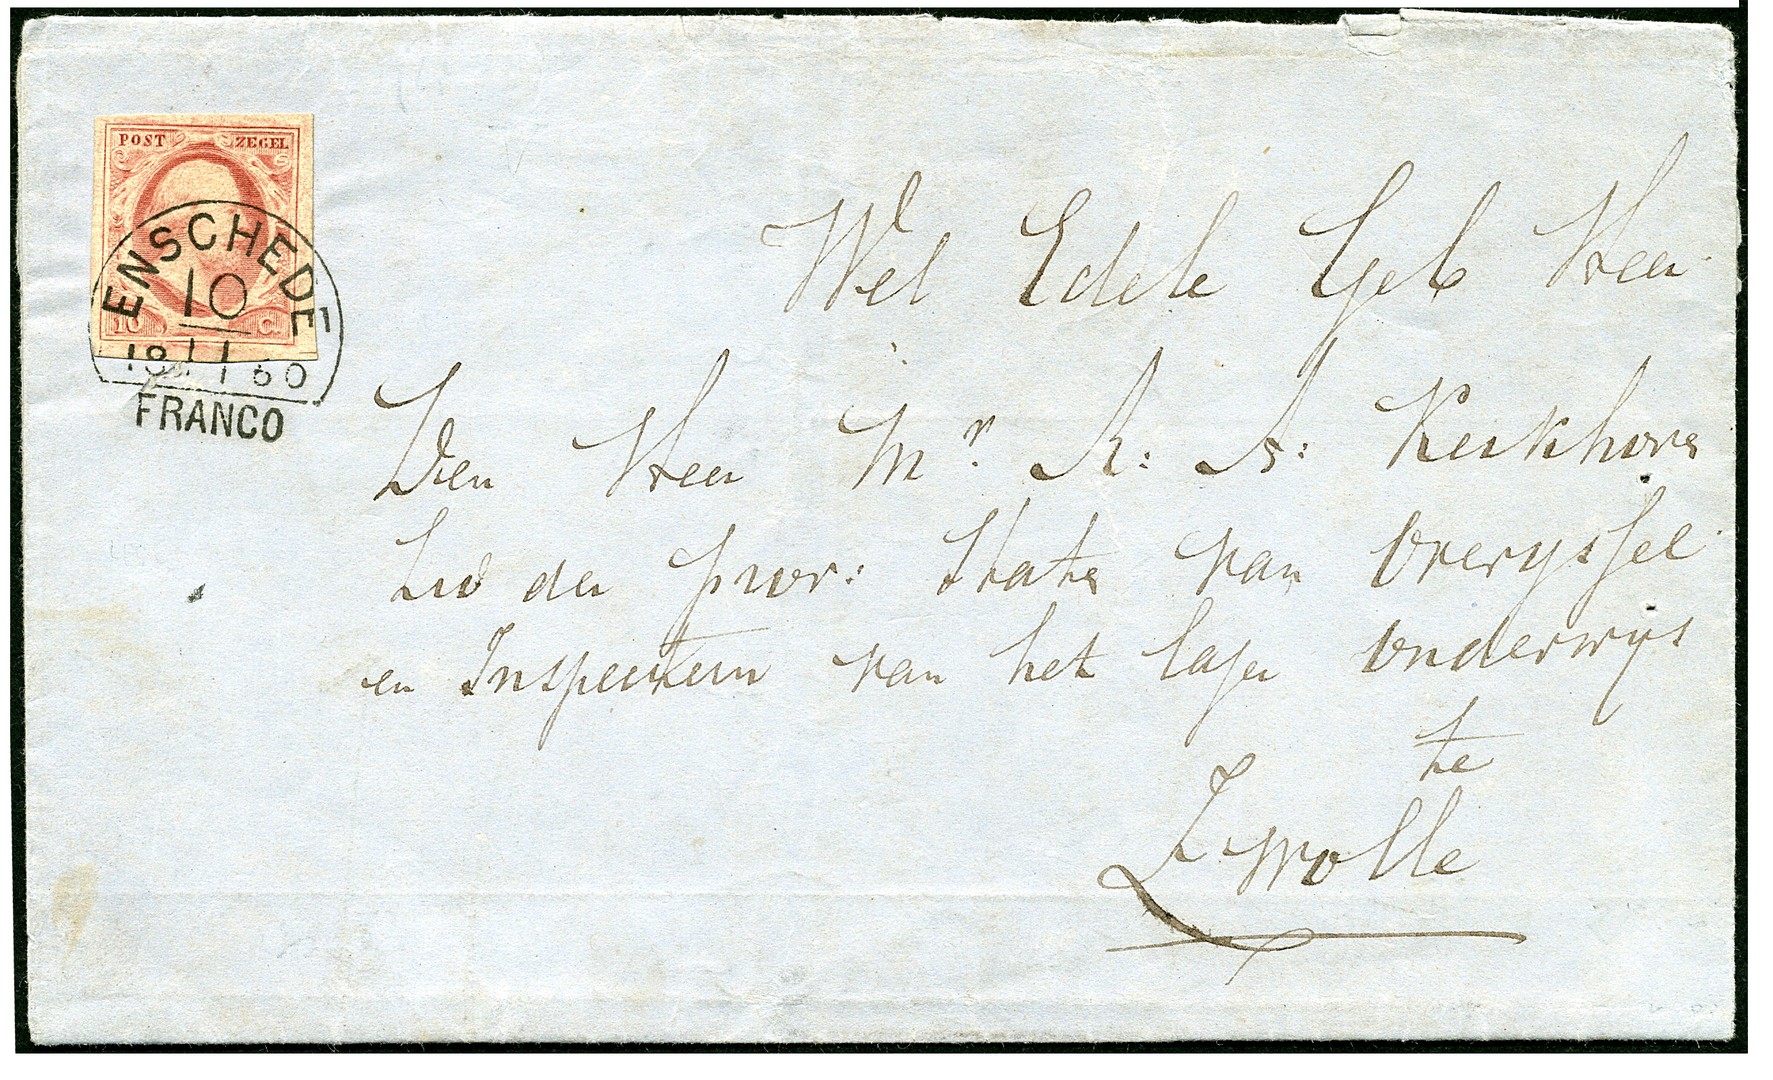 POST ZEGEL
10 C.
ENSCHEDE
10
1860
FRANCO
Wel Edele Geb Heer
Den Heer Mr. A: A: Kerkhove
Lid der prov: Staten van Overijssel
en Inspecteur van het lager Onderwijs
te
Zwolle